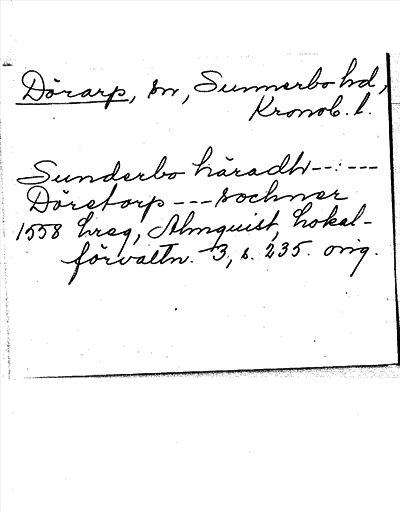 Dörarp, sn, Sunnerbo hd,
Kronob. l.
Sunderbo häradh--:---
Döretorp --- sochner
1558 hreg, Almquist, Lokal-
förvaltn. 3, s. 235. orig.